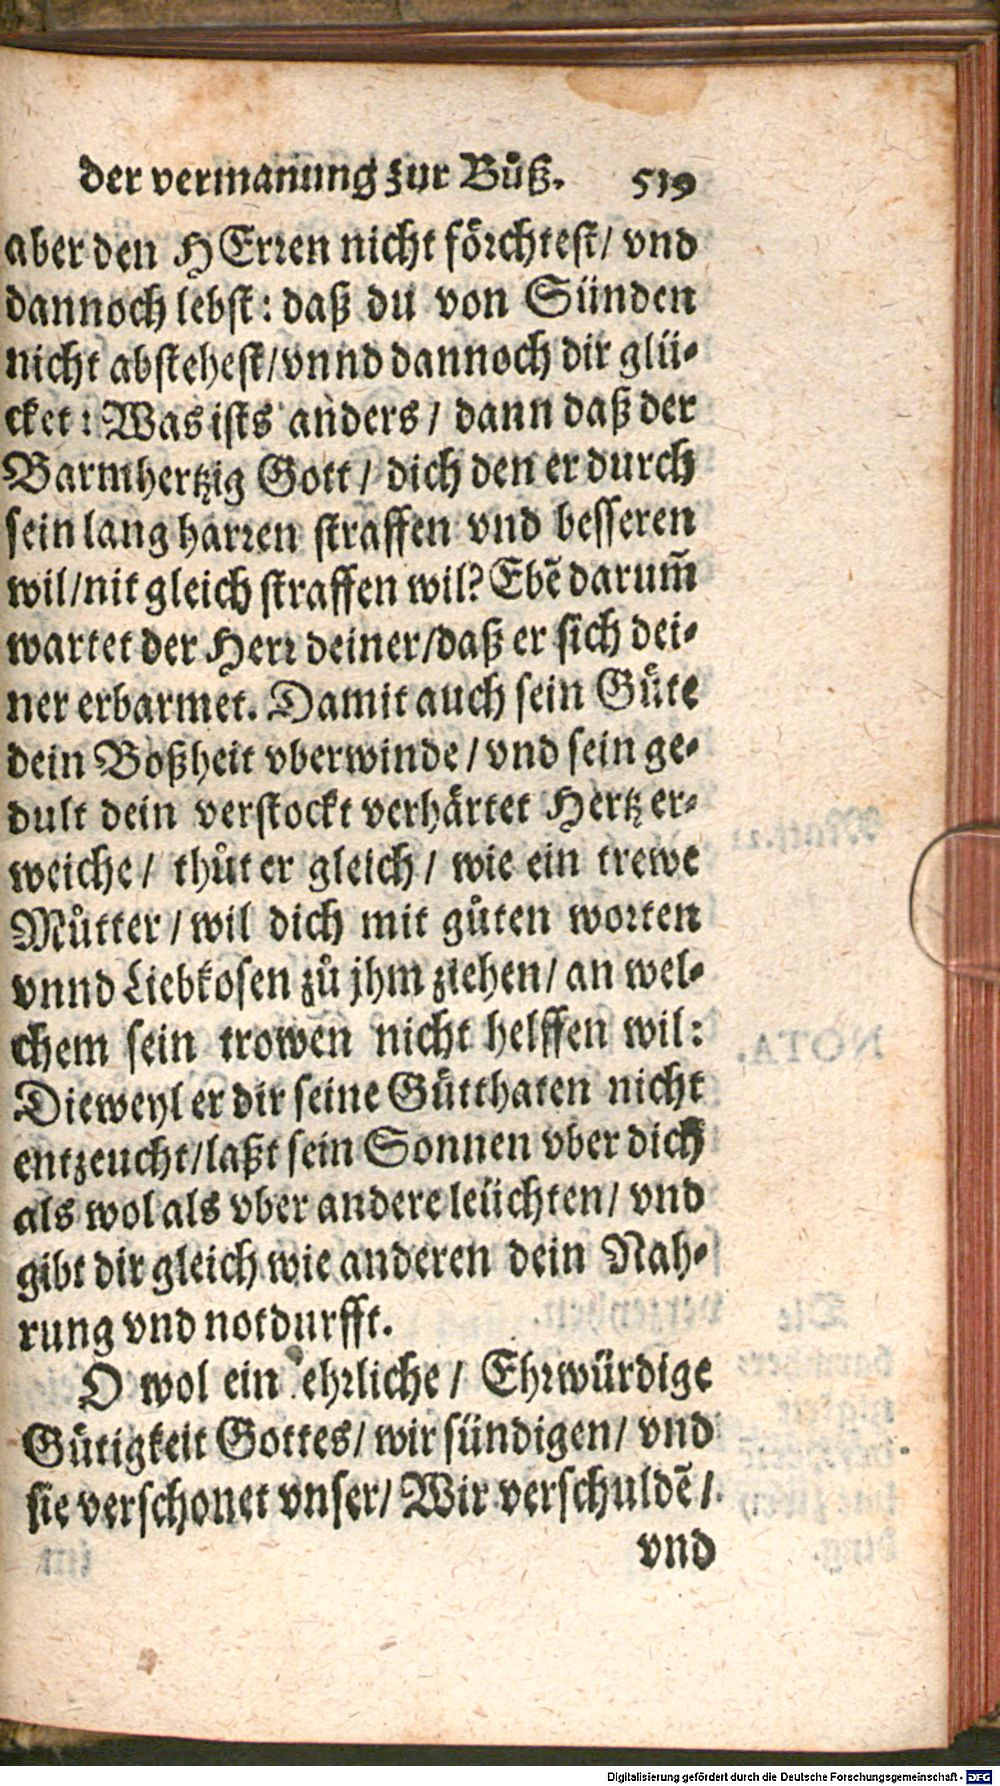 der vermanung zur Bůß. 519
aber den HErren nicht förchtest/ vnd
dannoch lebst: daß du von Sünden
nicht abstehest/vnnd dannoch dir glü-
cket: Was ists anders/ dann daß der
Barmhertzig Gott/ dich den er durch
sein lang harren straffen vnd besseren
wil/nit gleich straffen wil? Ebẽ darum̃
wartet der Herr deiner/daß er sich dei-
ner erbarmet. Damit auch sein Güte
dein Boßheit vberwinde/ vnd sein ge-
dult dein verstockt verhärtet Hertz er-
weiche/ thůt er gleich/ wie ein trewe
Můtter/ wil dich mit gůten worten
vnnd Liebkosen zů jhm ziehen/ an wel-
chem sein trowen nicht helffen wil:
Dieweyl er dir seine Gůtthaten nicht
entzeucht/laßt sein Sonnen vber dich
als wol als vber andere leüchten/ vnd
gibt dir gleich wie anderen dein Nah-
rung vnd notdurfft.
O wol ein ehrliche/ Ehrwürdige
Gütigkeit Gottes/ wir sündigen/ vnd
sie verschonet vnser/ Wir verschuldẽ/
vnd
Digitalisierung gefördert durch die Deutsche Forschungsgemeinschaft - DFG